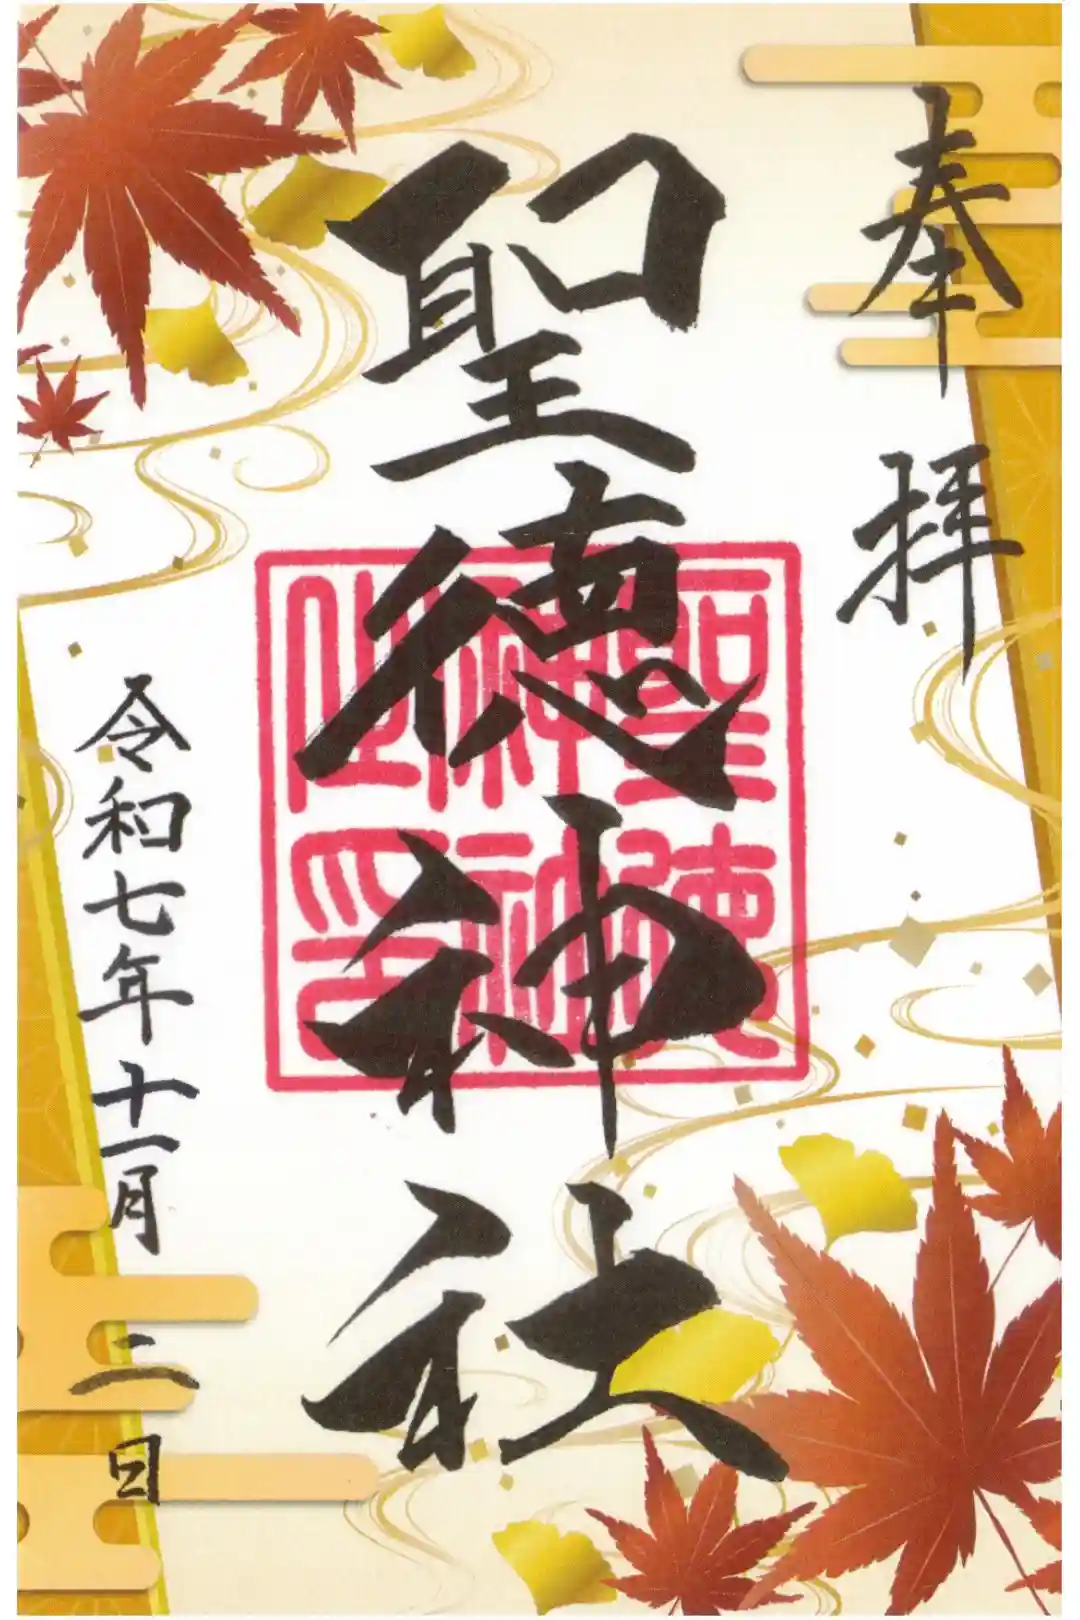 奉拝
聖徳神社
聖徳
神社
之印
令和七年十一月二日